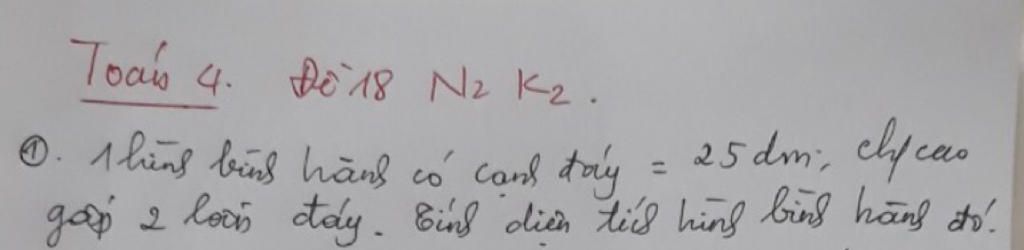 Toán 4. Đề 18 N2 K2.
①. 1 hình bình hành có cạnh đáy = 25 dm, ch/cao
gấp 2 lần đáy. Tính diện tích hình bình hành đó.